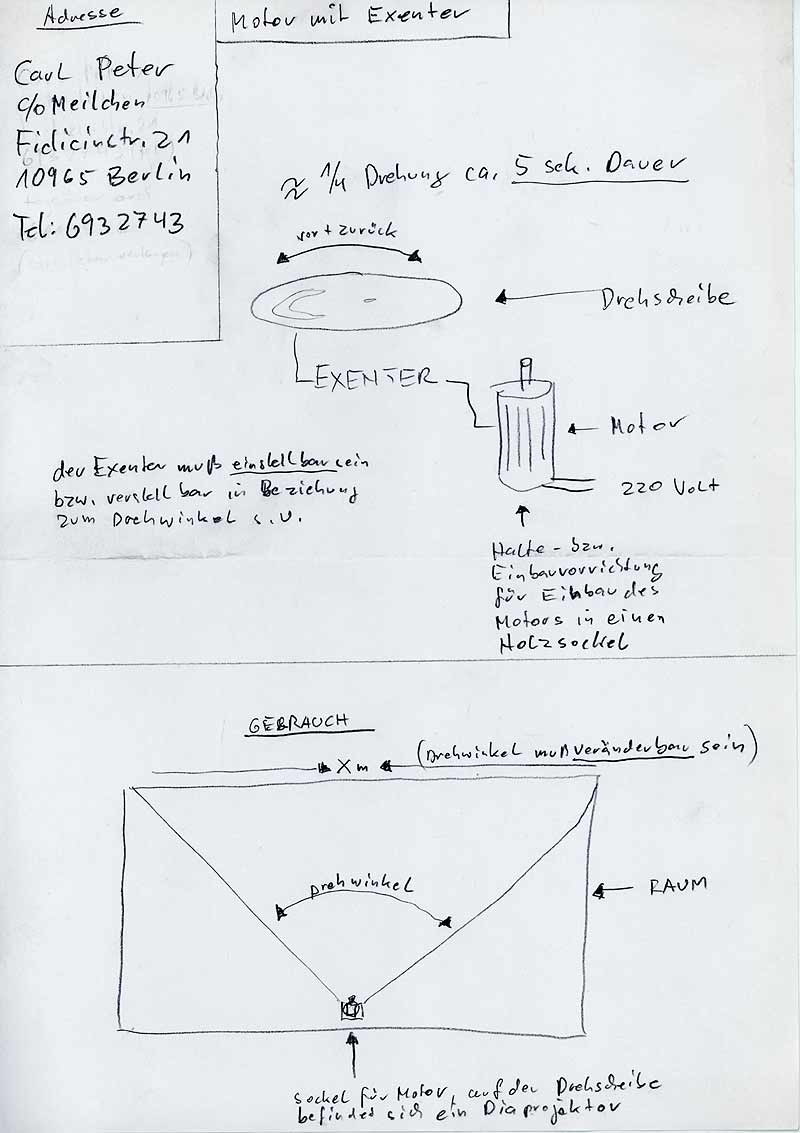 Adresse
Carl Peter
c/o Meilchen
Fidicinstr. 21
10965 Berlin
Tel: 6932743
Motor mit Exenter
≈ 1/4 Drehung ca. 5 sek. Dauer
vor + zurück
Drehscheibe
EXENTER
Motor
220 Volt
der Exenter muß einstellbar sein
bzw. verstellbar in Beziehung
zum Drehwinkel s.u.
Halte- bzw.
Einbauvorrichtung
für Einbau des
Motors in einen
Holzsockel
GEBRAUCH
X m (Drehwinkel muß veränderbar sein)
Drehwinkel
RAUM
Sockel für Motor, auf der Drehscheibe
befindet sich ein Diaprojektor